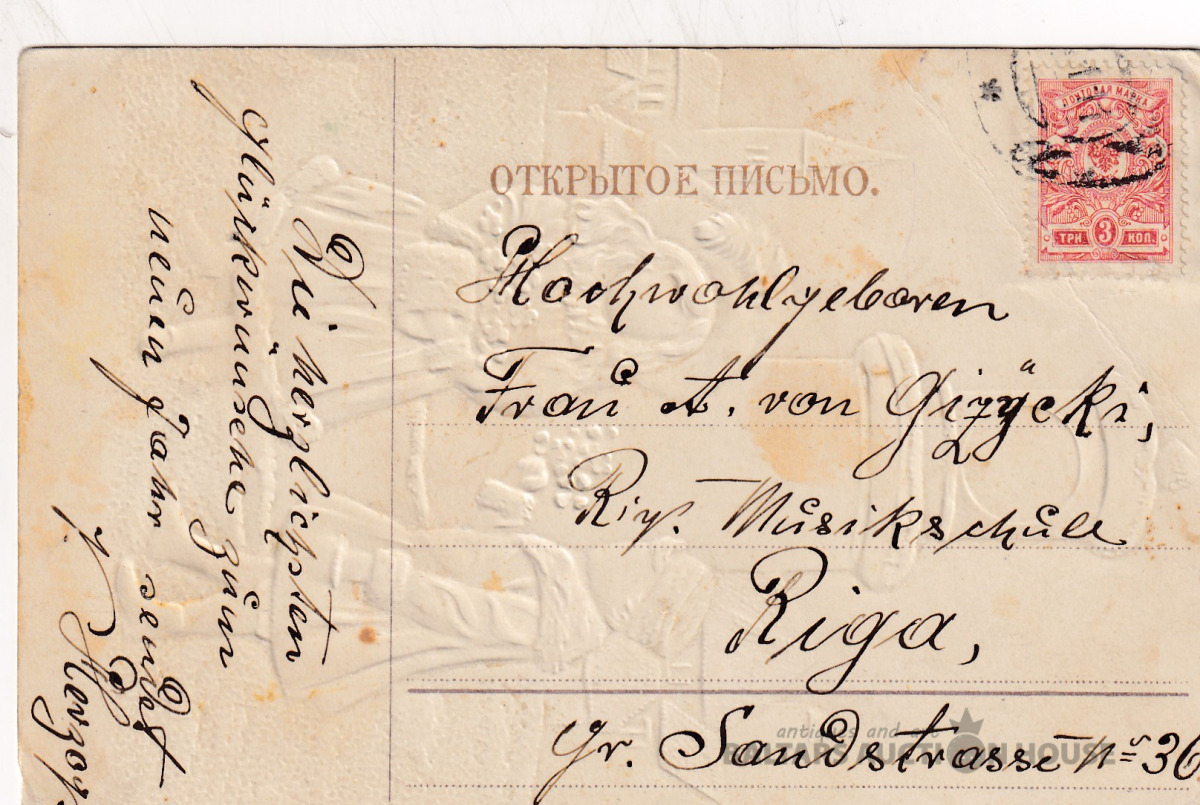 ОТКРЫТОЕ ПИСЬМО.
ПОЧТОВАЯ МАРКА
ТРИ 3 КОП.
Hochwohlgeboren
Frau A. von Giżycki,
Rig. Musikschule
Riga,
gr. Sandstrasse № 36
Die herzlichsten
Glückwünsche zum
neuen Jahr sendet
Herzog
antiques and art
BALTARS AUCTION HOUSE